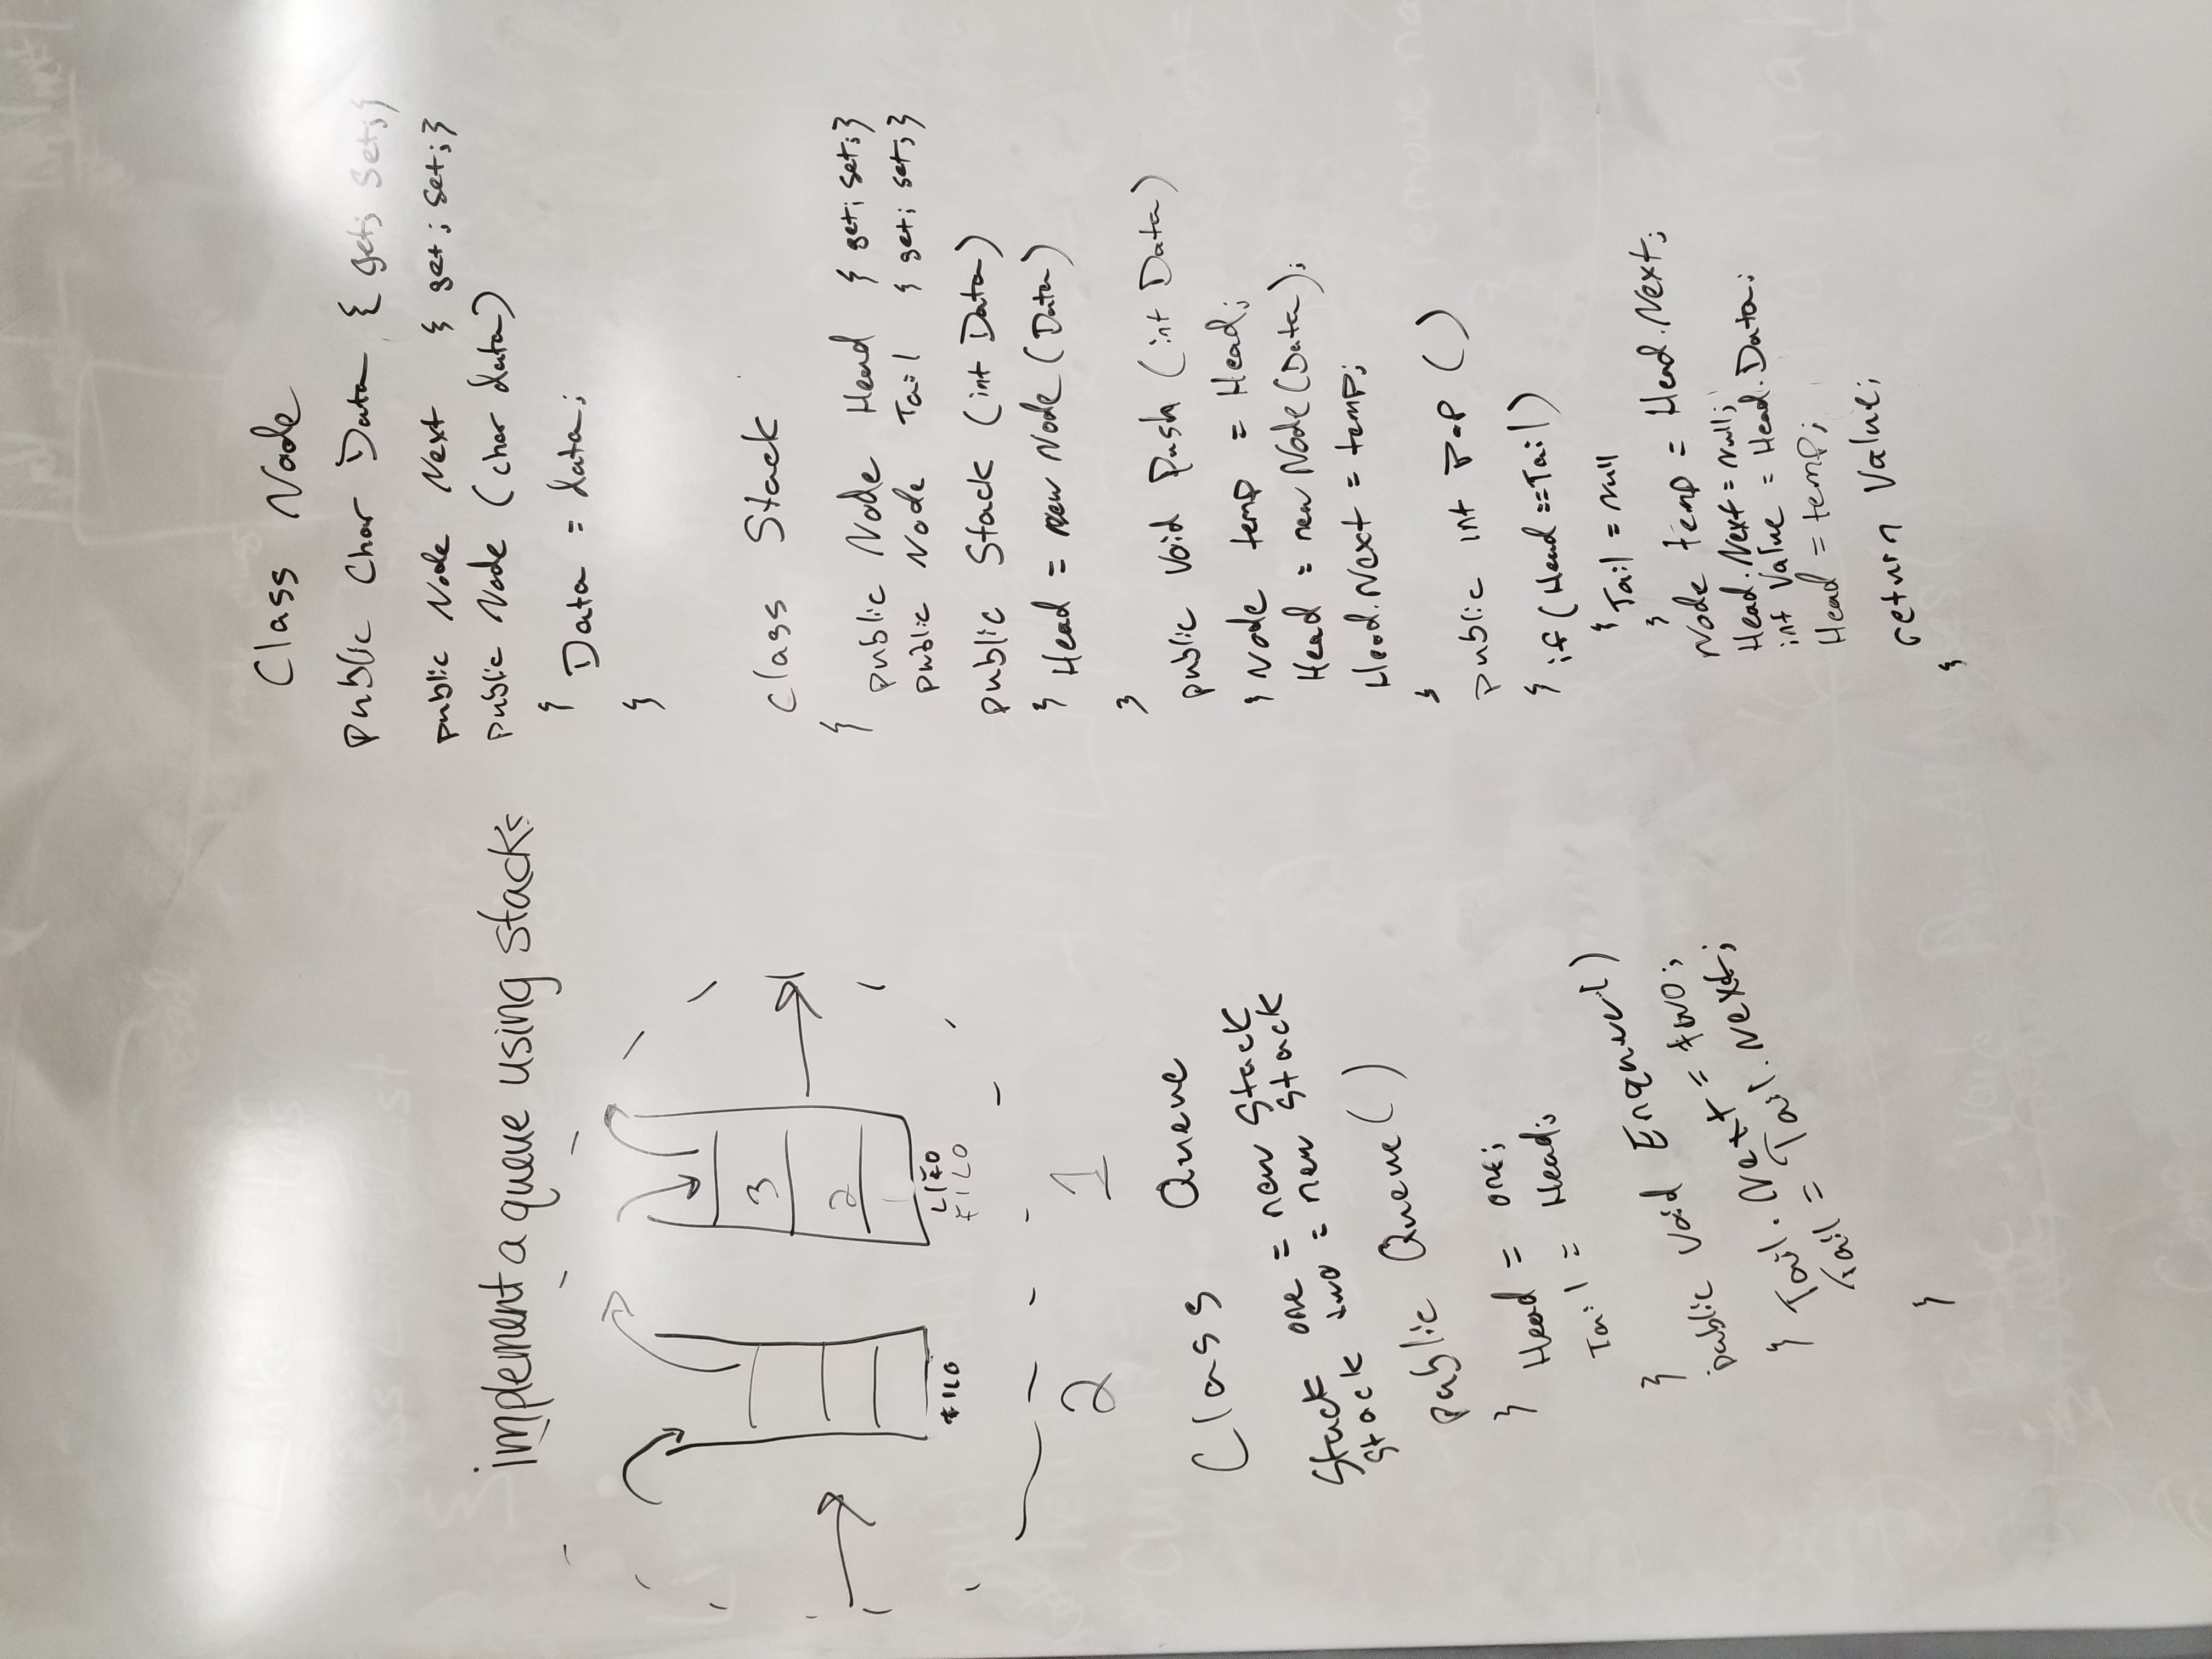 implement a queue using stacks
3
2
1
FILO
LIFO
FILO
2 1
Class Queue
Stack one = new Stack
Stack two = new Stack
public Queue()
{ Head = one;
Tail = Head;
}
public void Enqueue()
{ Tail.Next = two;
Tail = Tail.Next;
}
Class Node
public Char Data { get; Set;}
public Node Next { get; set;}
public Node (char data)
{ Data = data;
}
Class Stack
{
public Node Head { get; set;}
public Node Tail { get; set;}
public Stack (int Data)
{ Head = new Node (Data)
}
public void Push (int Data)
{ Node temp = Head;
Head = new Node(Data);
Head.Next = temp;
}
public int Pop ()
{ if (Head == Tail)
{ Tail = Null
}
Node temp = Head.Next;
Head.Next = Null;
int Value = Head.Data;
Head = temp;
return Value;
}